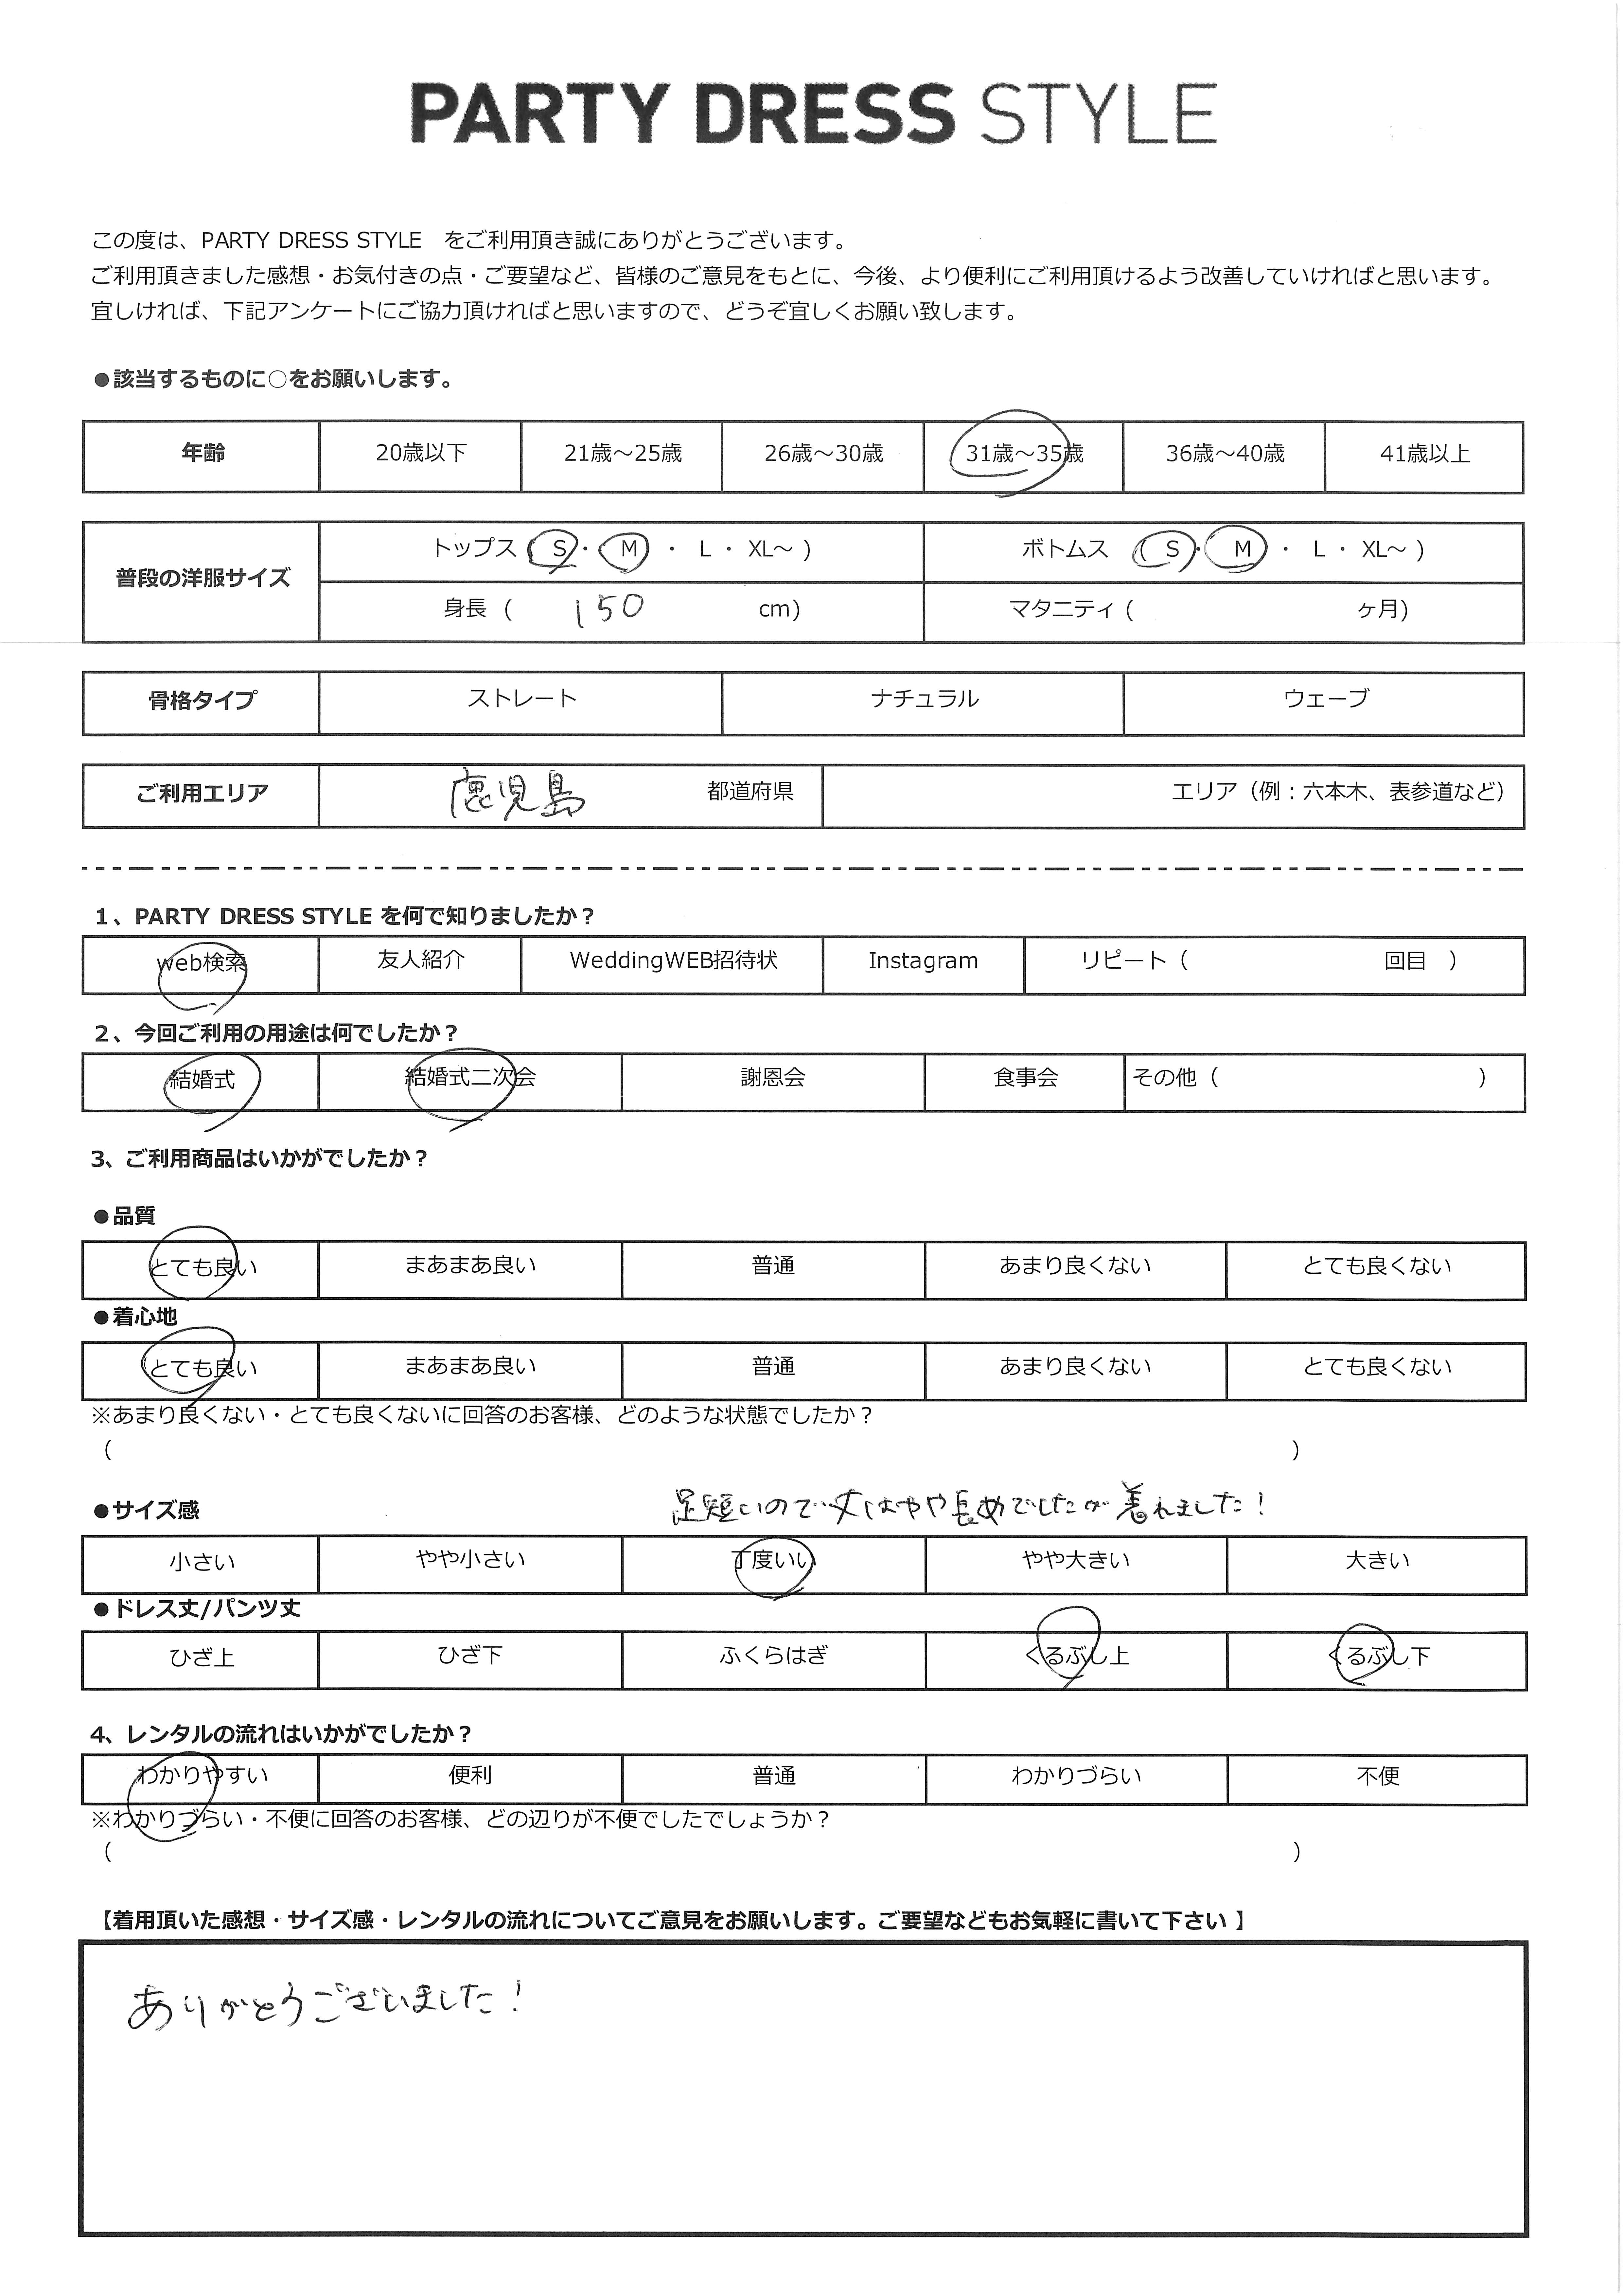 PARTY DRESS STYLE
この度は、PARTY DRESS STYLE　をご利用頂き誠にありがとうございます。
ご利用頂きました感想・お気付きの点・ご要望など、皆様のご意見をもとに、今後、より便利にご利用頂けるよう改善していければと思います。
宜しければ、下記アンケートにご協力頂ければと思いますので、どうぞ宜しくお願い致します。
●該当するものに○をお願いします。
年齢 20歳以下 21歳～25歳 26歳～30歳 31歳～35歳 36歳～40歳 41歳以上
普段の洋服サイズ
トップス ( S ・ M ・ L ・ XL～ ) ボトムス ( S ・ M ・ L ・ XL～ )
身長 ( 150 cm) マタニティ ( ヶ月)
骨格タイプ ストレート ナチュラル ウェーブ
ご利用エリア 鹿児島 都道府県 エリア（例：六本木、表参道など）
1、PARTY DRESS STYLE を何で知りましたか？
web検索 友人紹介 WeddingWEB招待状 Instagram リピート（ 回目 ）
2、今回ご利用の用途は何でしたか？
結婚式 結婚式二次会 謝恩会 食事会 その他（ ）
3、ご利用商品はいかがでしたか？
●品質
とても良い まあまあ良い 普通 あまり良くない とても良くない
●着心地
とても良い まあまあ良い 普通 あまり良くない とても良くない
※あまり良くない・とても良くないに回答のお客様、どのような状態でしたか？
（ ）
●サイズ感 足短いので丈はやや長めでしたが着れました！
小さい やや小さい 丁度いい やや大きい 大きい
●ドレス丈/パンツ丈
ひざ上 ひざ下 ふくらはぎ くるぶし上 くるぶし下
4、レンタルの流れはいかがでしたか？
わかりやすい 便利 普通 わかりづらい 不便
※わかりづらい・不便に回答のお客様、どの辺りが不便でしたでしょうか？
（ ）
【着用頂いた感想・サイズ感・レンタルの流れについてご意見をお願いします。ご要望などもお気軽に書いて下さい 】
ありがとうございました！